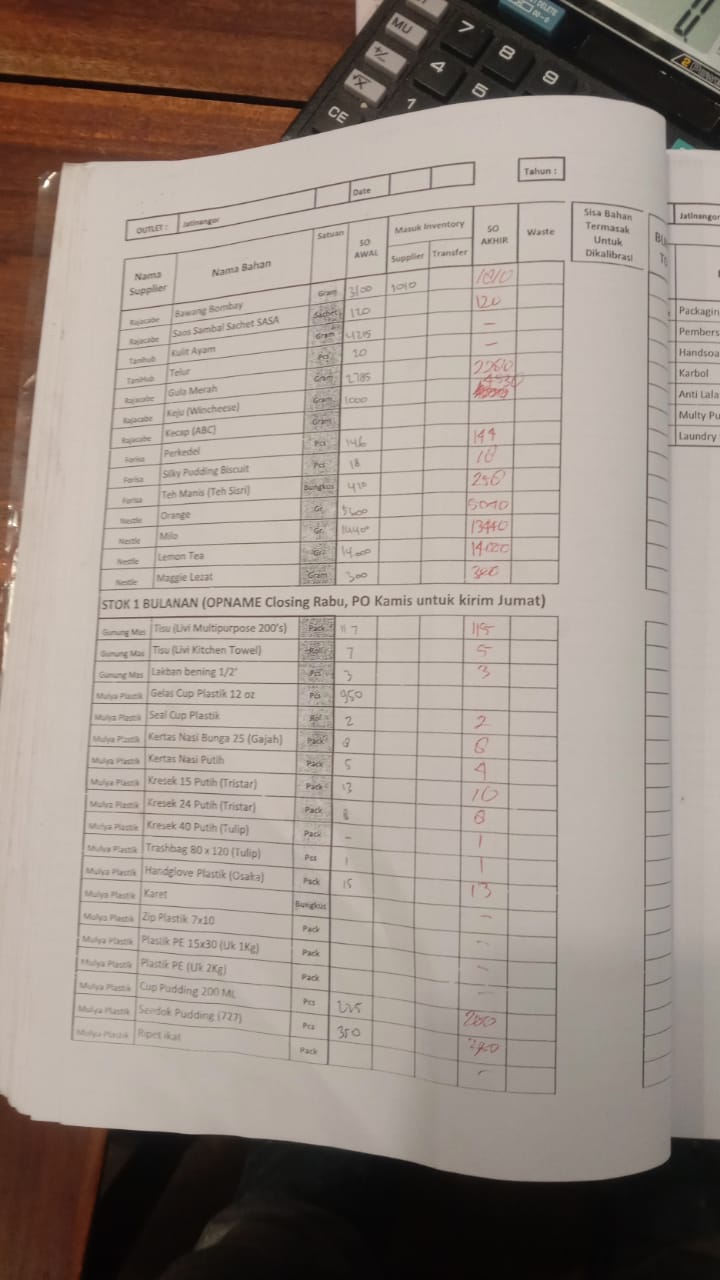 MU
7
8
9
4
5
1
CE
+/-
√x
OUTLET : Jatinangor Date Tahun :
Nama Supplier Nama Bahan Satuan SO AWAL Masuk Inventory Supplier Transfer SO AKHIR Waste Sisa Bahan Termasak Untuk Dikalibrasi
Rajacabe Bawang Bombay Gram 3100 1010 1010
Rajacabe Saos Sambal Sachet SASA Sachet 120 120
TaniHub Kulit Ayam Gram 4215 -
TaniHub Telur Pcs 20 -
Rajacabe Gula Merah Gram 2785
Rajacabe Keju (Wincheese) Gram 1000
Rajacabe Kecap (ABC) Gram
Forisa Perkedel Pcs 146 144
Forisa Silky Pudding Biscuit Pcs 18
Forisa Teh Manis (Teh Sisri) Bungkus 410
Nestle Orange Gr
Nestle Milo Gr 13440
Nestle Lemon Tea Gr 14.000 14000
Nestle Maggie Lezat Gram 300 300
STOK 1 BULANAN (OPNAME Closing Rabu, PO Kamis untuk kirim Jumat)
Gunung Mas Tisu (Livi Multipurpose 200's) Pack 117 115
Gunung Mas Tisu (Livi Kitchen Towel) Roll 7 5
Gunung Mas Lakban bening 1/2" Pcs 3 3
Mulya Plastik Gelas Cup Plastik 12 oz Pcs 950
Mulya Plastik Seal Cup Plastik Rol 2 2
Mulya Plastik Kertas Nasi Bunga 25 (Gajah) Pack
Mulya Plastik Kertas Nasi Putih Pack 5 4
Mulya Plastik Kresek 15 Putih (Tristar) Pack 13 10
Mulya Plastik Kresek 24 Putih (Tristar) Pack 8 8
Mulya Plastik Kresek 40 Putih (Tulip) Pack - 1
Mulya Plastik Trashbag 80 x 120 (Tulip) Pcs 1 1
Mulya Plastik Handglove Plastik (Osaka) Pack 15 13
Mulya Plastik Karet Bungkus -
Mulya Plastik Zip Plastik 7x10 Pack -
Mulya Plastik Plastik PE 15x30 (Uk 1Kg) Pack -
Mulya Plastik Plastik PE (Uk 2Kg) Pack -
Mulya Plastik Cup Pudding 200 ML Pcs 225 200
Mulya Plastik Sendok Pudding (727) Pcs 350
Mulya Plastik Ripet ikat Pack -
Jatinangor
Packagin
Pembers
Handsoa
Karbol
Anti Lala
Multy Pu
Laundry